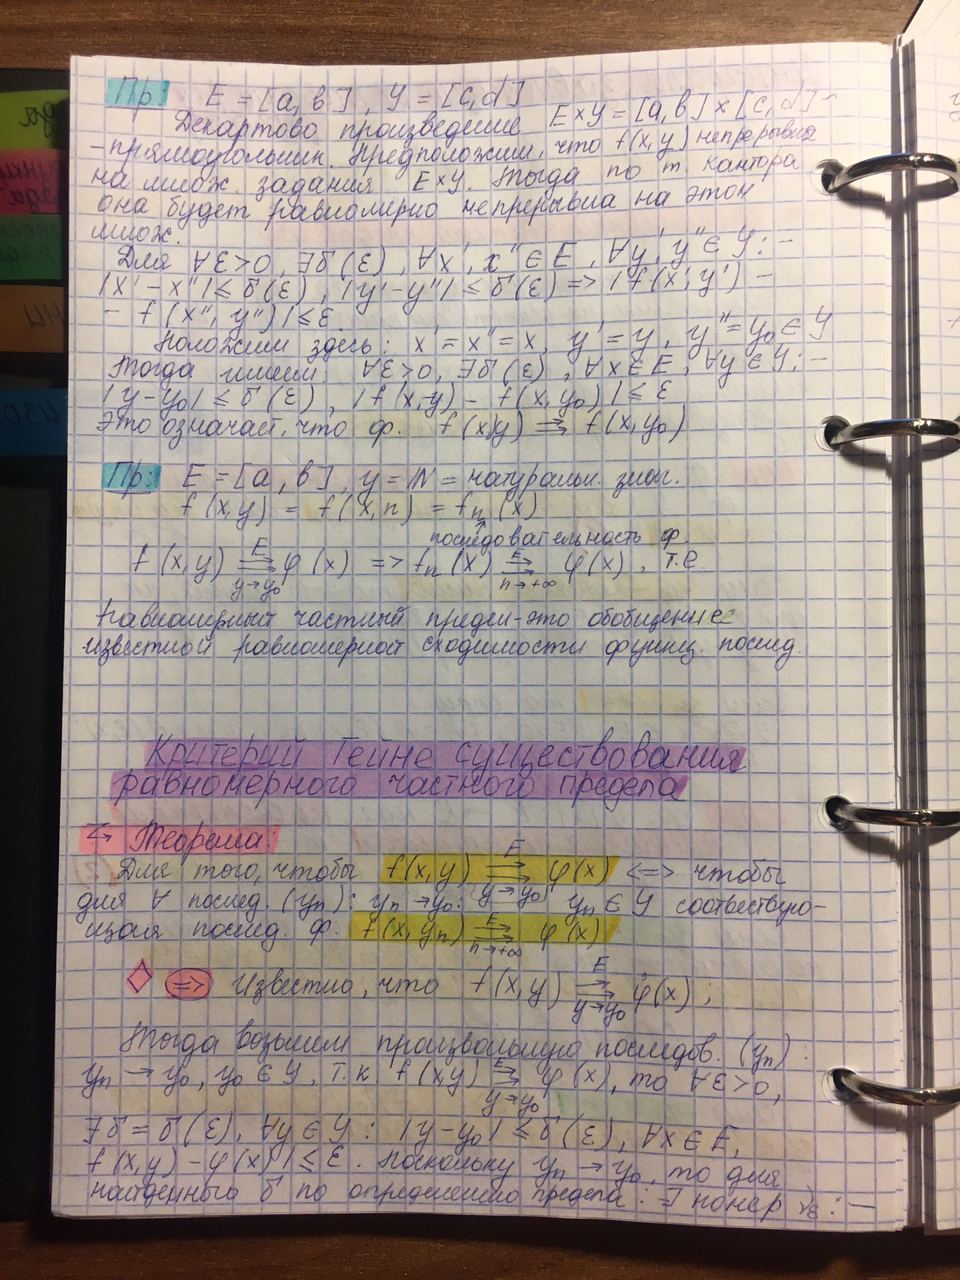 Пр: E = [a, b], Y = [c, d]
Декартово произведение E×Y = [a, b] × [c, d] –
– прямоугольник. Предположим, что f(x, y) непрерывна
на множ. задания E×Y. Тогда по т. Кантора
она будет равномерно непрерывна на этом
множ.
Для ∀ε>0, ∃δ(ε), ∀x', x'' ∈ E, ∀y', y'' ∈ Y: –
|x' – x''| ≤ δ(ε), |y' – y''| ≤ δ(ε) => |f(x', y') –
– f(x'', y'')| ≤ ε.
Положим здесь: x' = x'' = x, y' = y, y'' = y₀ ∈ Y
Тогда имеем: ∀ε>0, ∃δ(ε), ∀x ∈ E, ∀y ∈ Y: –
|y – y₀| ≤ δ(ε), |f(x, y) – f(x, y₀)| ≤ ε
Это означает, что ф. f(x, y) ⇉ f(x, y₀)
Пр: E = [a, b], y = N = натуральн. знач.
f(x, y) = f(x, n) = fₙ(x)
последовательность ф.
f(x, y) ⇉ᴱ φ(x) => fₙ(x) ⇉ᴱ φ(x), т.е.
y→y₀ n→+∞
Равномерный частный предел – это обобщение
известной равномерной сходимости функц. послед.
Критерий Гейне существования
равномерного частного предела
Теорема:
Для того, чтобы f(x, y) ⇉ᴱ φ(x) <=> чтобы
y→y₀
для ∀ послед. (yₙ): yₙ → y₀: yₙ ∈ Y соотвествую-
щая послед. ф. f(x, yₙ) ⇉ᴱ φ(x)
n→+∞
=> Известно, что f(x, y) ⇉ᴱ φ(x);
y→y₀
Тогда возьмем произвольную последов. (yₙ):
yₙ → y₀, y₀ ∈ Y, т.к f(x, y) ⇉ᴱ φ(x), то ∀ε>0,
y→y₀
∃δ = δ(ε), ∀y ∈ Y: |y – y₀| ≤ δ(ε), ∀x ∈ E,
f(x, y) – φ(x)| ≤ ε. Поскольку yₙ → y₀, то для
найденного δ по определению предела: ∃ номер : –